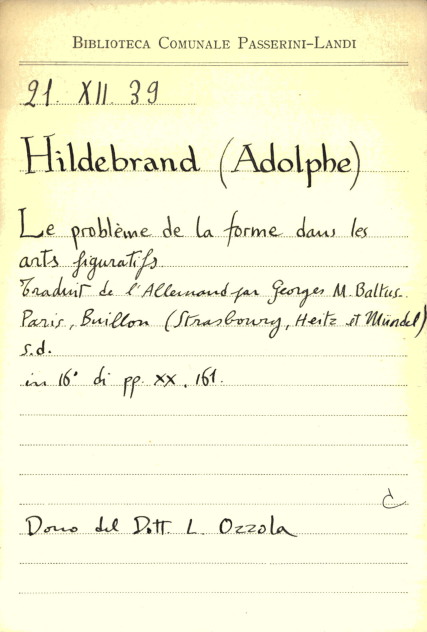 BIBLIOTECA COMUNALE PASSERINI-LANDI
21. XII. 39
Hildebrand (Adolphe)
Le problème de la forme dans les
arts figuratifs
Traduit de l'Allemand par Georges M. Baltus.
Paris, Buillon (Strasbourg, Heitz et Mündel)
s.d.
in 16° di pp. XX, 161.
Dono del Dott. L. Ozzola